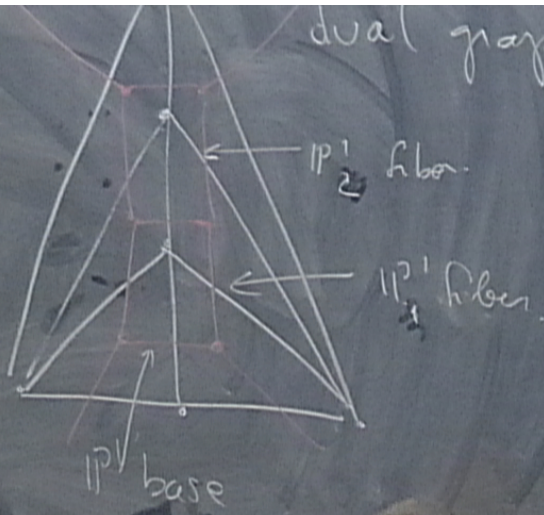 dual grap
ℙ¹₂ fiber.
ℙ¹₁ fiber.
ℙ¹ base